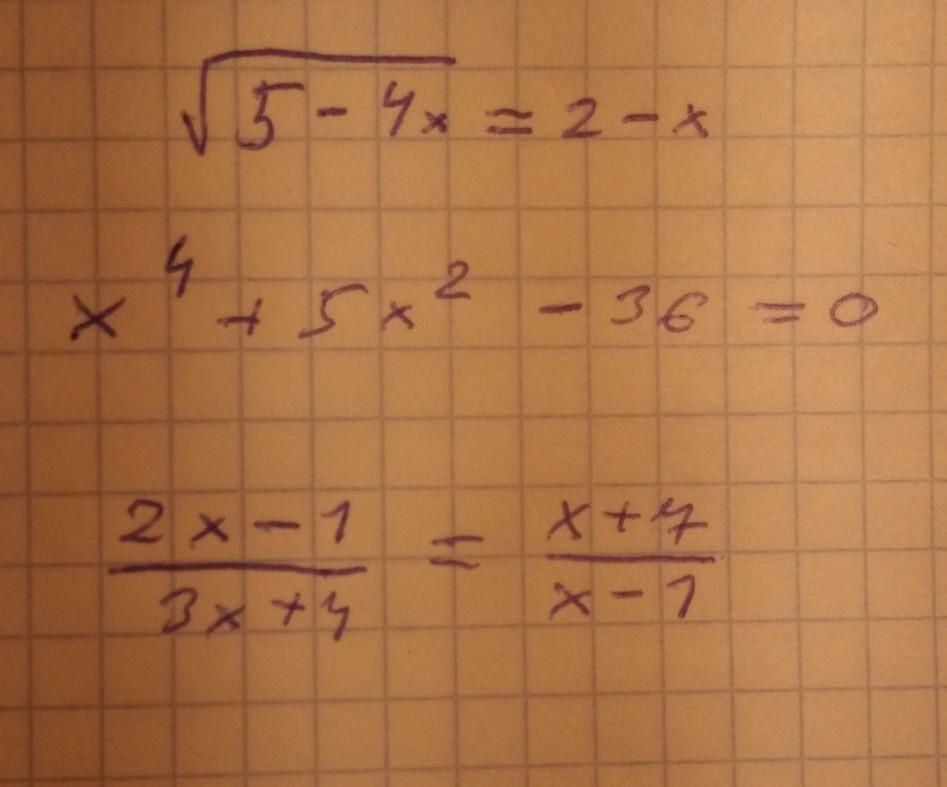 √(5 - 4x) = 2 - x
x⁴ + 5x² - 36 = 0
(2x - 1)/(3x + 4) = (x + 7)/(x - 1)